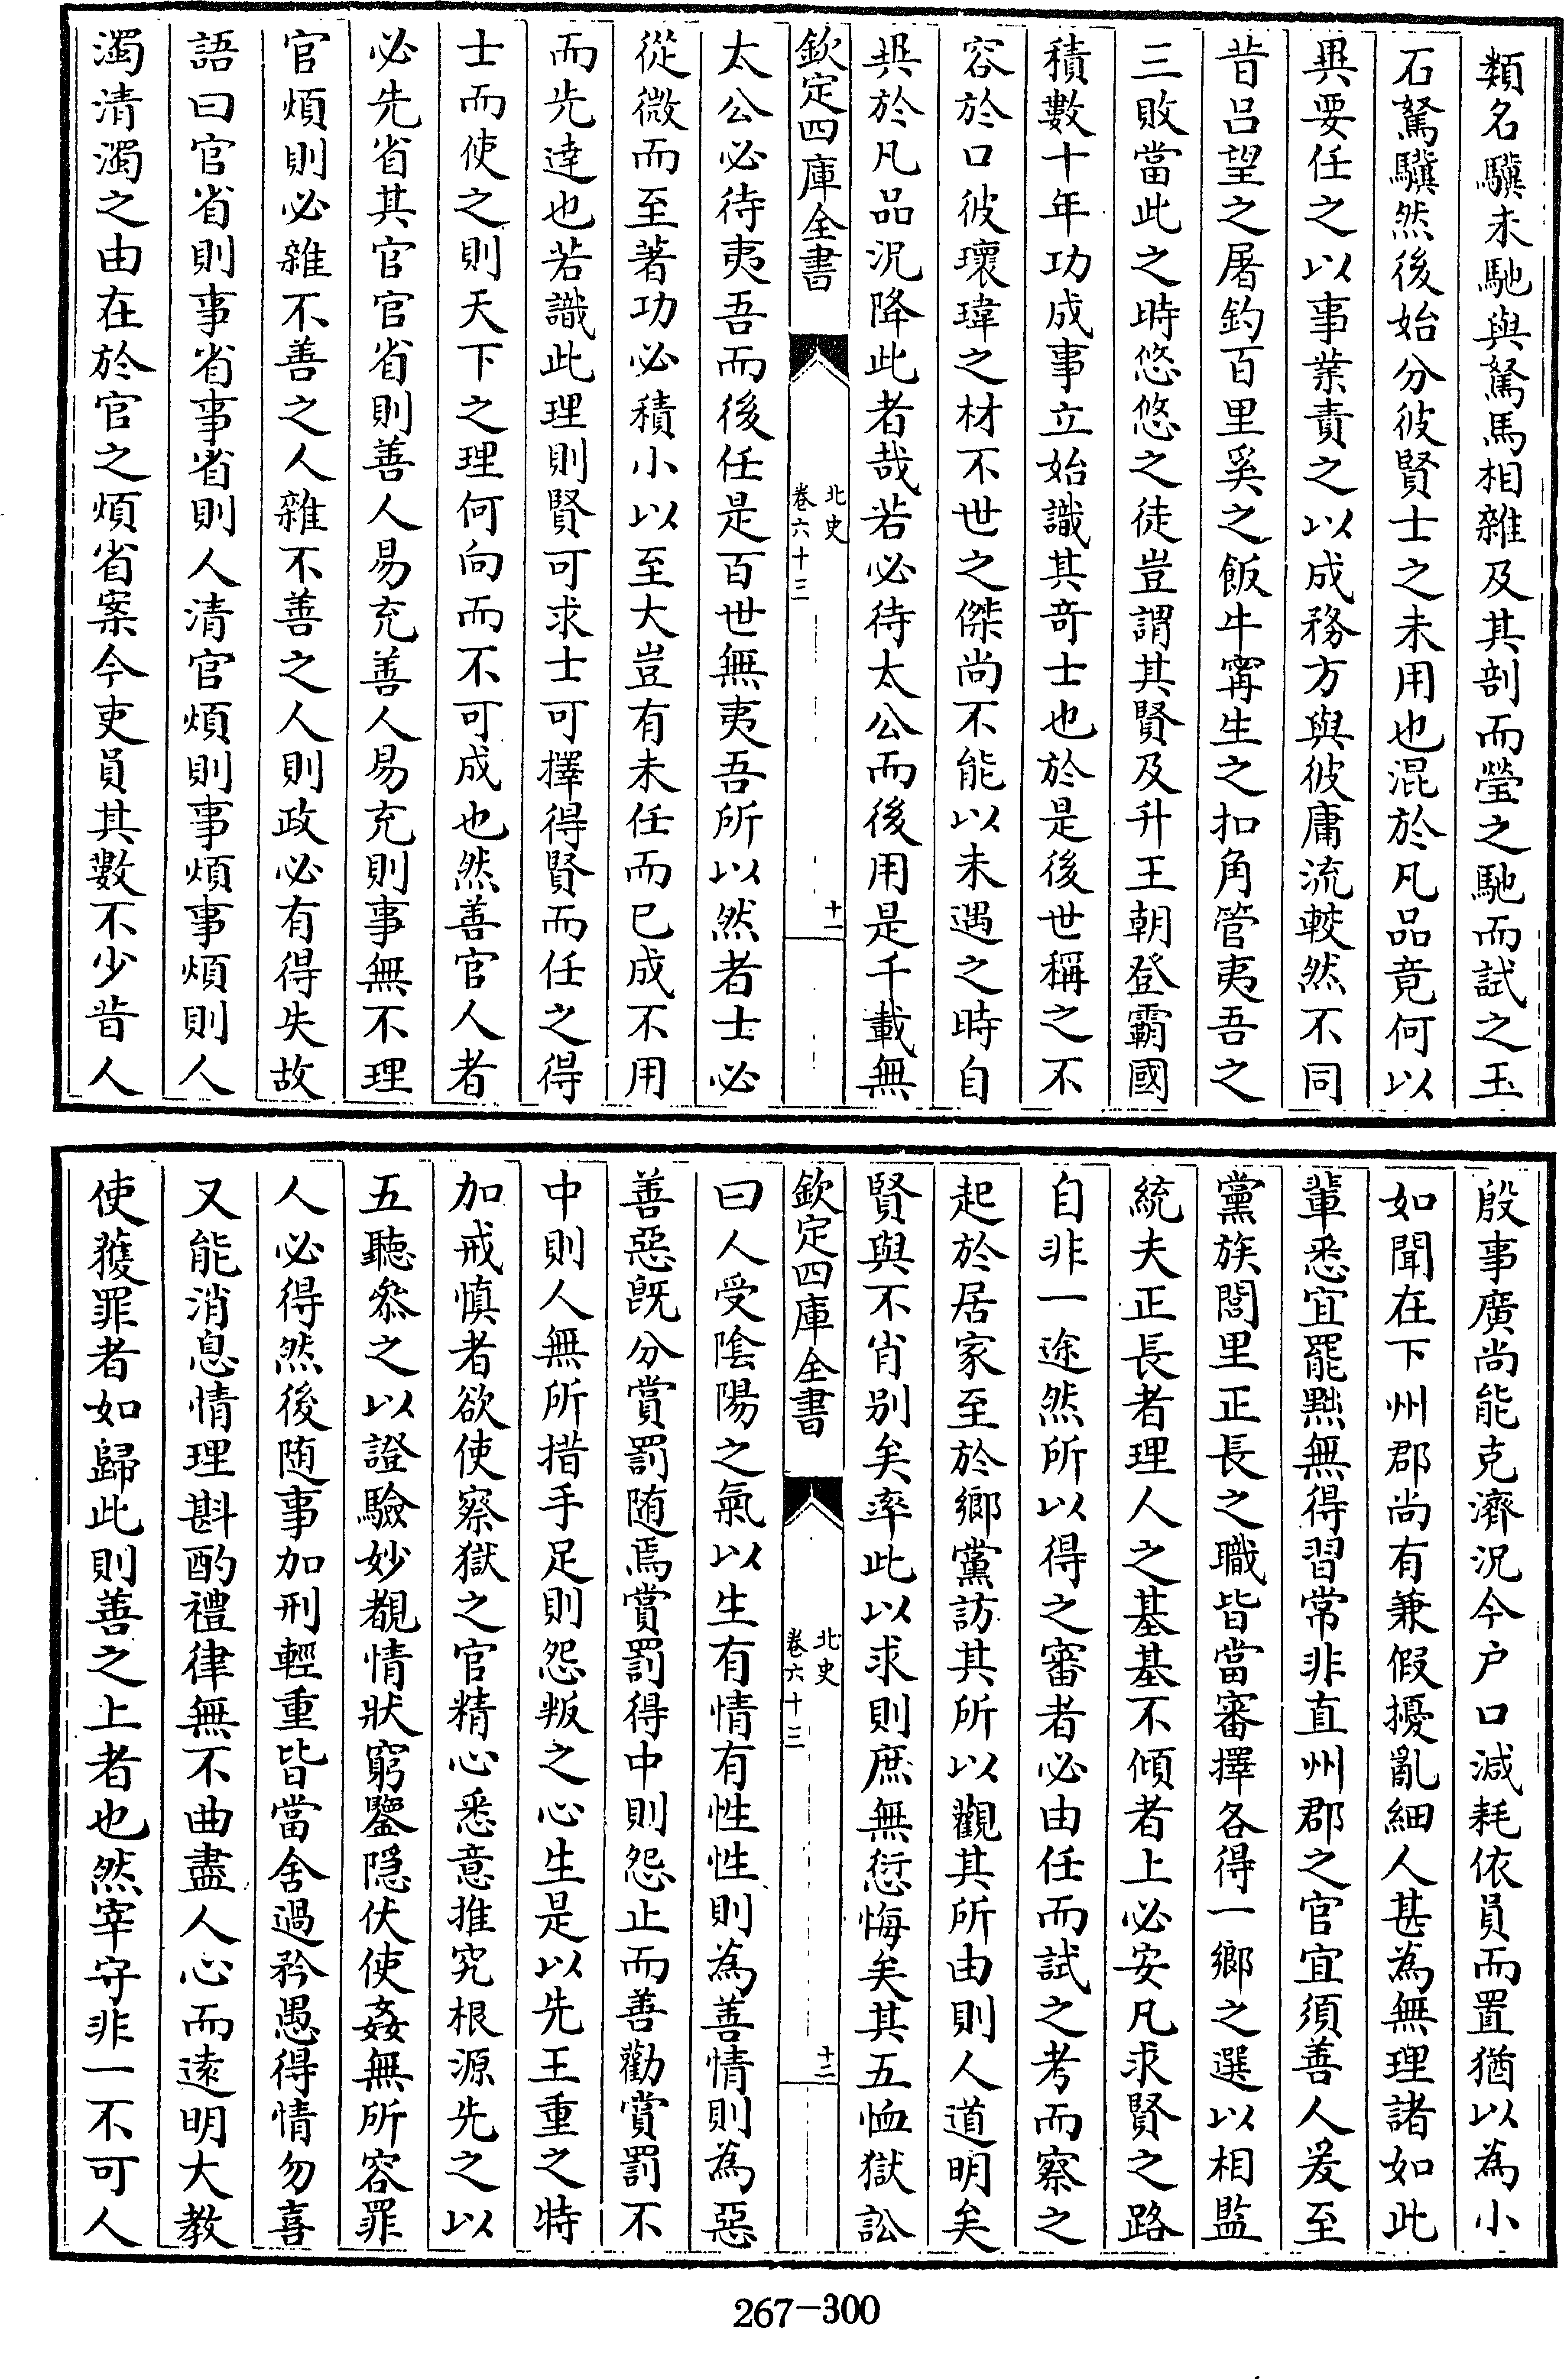 類名驥未馳與駑馬相雜及其剖而瑩之馳而試之玉
石駑驥然後始分彼賢士之未用也混於凡品竟何以
異要任之以事業責之以成務方與彼庸流較然不同
昔呂望之屠釣百里奚之飯牛甯生之扣角管夷吾之
三敗當此之時悠悠之徒豈謂其賢及升王朝登霸國
積數十年功成事立始識其奇士也於是後世稱之不
容於口彼瓌瑋之材不世之傑尚不能以未遇之時自
異於凡品況降此者哉若必待太公而後用是千載無
欽定四庫全書
北史
卷六十三
十一
太公必待夷吾而後任是百世無夷吾所以然者士必
從微而至著功必積小以至大豈有未任而已成不用
而先達也若識此理則賢可求士可擇得賢而任之得
士而使之則天下之理何向而不可成也然善官人者
必先省其官官省則善人易充善人易充則事無不理
官煩則必雜不善之人雜不善之人則政必有得失故
語曰官省則事省事省則人清官煩則事煩事煩則人
濁清濁之由在於官之煩省案今吏員其數不少昔人
殷事廣尚能克濟況今户口減耗依員而置猶以為小
如聞在下州郡尚有兼假擾亂細人甚為無理諸如此
輩悉宜罷黜無得習常非直州郡之官宜須善人爰至
黨族閭里正長之職皆當審擇各得一鄉之選以相監
統夫正長者理人之基基不傾者上必安凡求賢之路
自非一途然所以得之審者必由任而試之考而察之
起於居家至於鄉黨訪其所以觀其所由則人道明矣
賢與不肖别矣率此以求則庶無愆悔矣其五恤獄訟
欽定四庫全書
北史
卷六十三
十二
曰人受陰陽之氣以生有情有性性則為善情則為惡
善惡既分賞罰随焉賞罰得中則怨止而善勸賞罰不
中則人無所措手足則怨叛之心生是以先王重之特
加戒慎者欲使察獄之官精心悉意推究根源先之以
五聽叅之以證驗妙覩情狀窮鑒隱伏使姦無所容罪
人必得然後随事加刑輕重皆當舍過矜愚得情勿喜
又能消息情理斟酌禮律無不曲盡人心而遠明大教
使獲罪者如歸此則善之上者也然宰守非一不可人
267-300